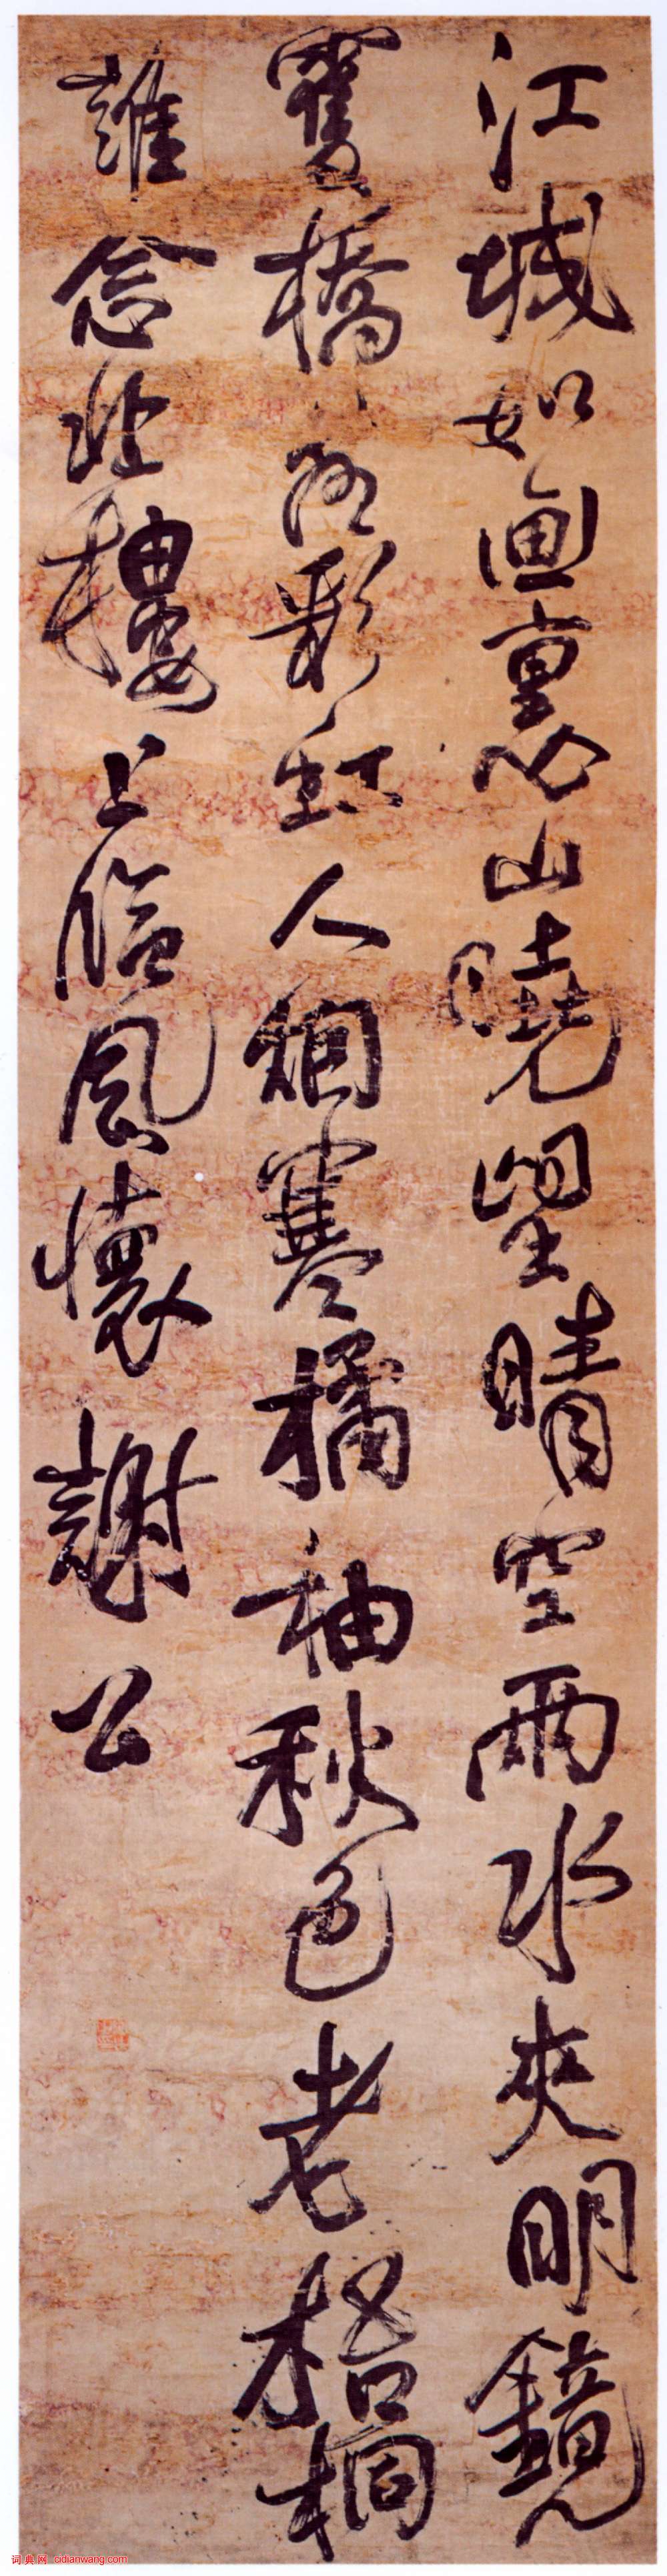 江城如画裏山曉望晴空兩水夾明鏡
雙橋落彩虹人烟寒橘柚秋色老梧桐
誰念北樓上臨風懷謝公
词典网 cidianwang.com